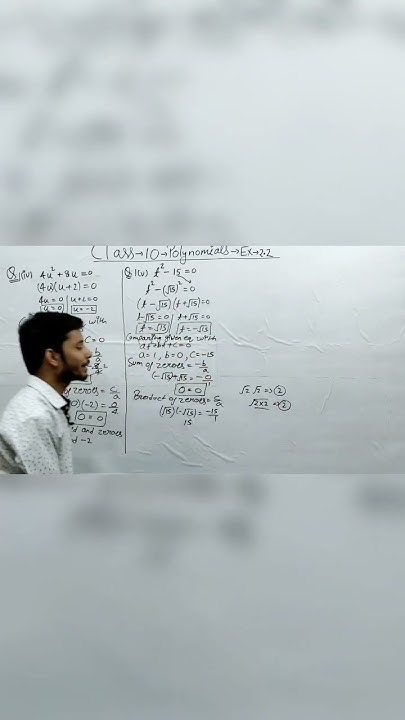 Class→10→Polynomials→Ex→2.2
Q.1(iv) 4u² + 8u = 0
(4u)(u + 2) = 0
4u = 0 | u + 2 = 0
u = 0 | u = -2
with
C = 0
of zeroes = c/a
0)(-2) = 0/4
0 = 0
and zeroes
-2
Q.1(v) t² - 15 = 0
t² - (√15)² = 0
(t - √15)(t + √15) = 0
t - √15 = 0 | t + √15 = 0
t = √15 | t = -√15
Comparing given eq. with
at² + bt + c = 0
a = 1, b = 0, C = -15
Sum of zeroes = -b/a
(-√15) + √15 = -0/1
0 = 0
Product of zeroes = c/a
(√15)(-√15) = -15/1
15
√2 √2 => 2
√2×2 => 2